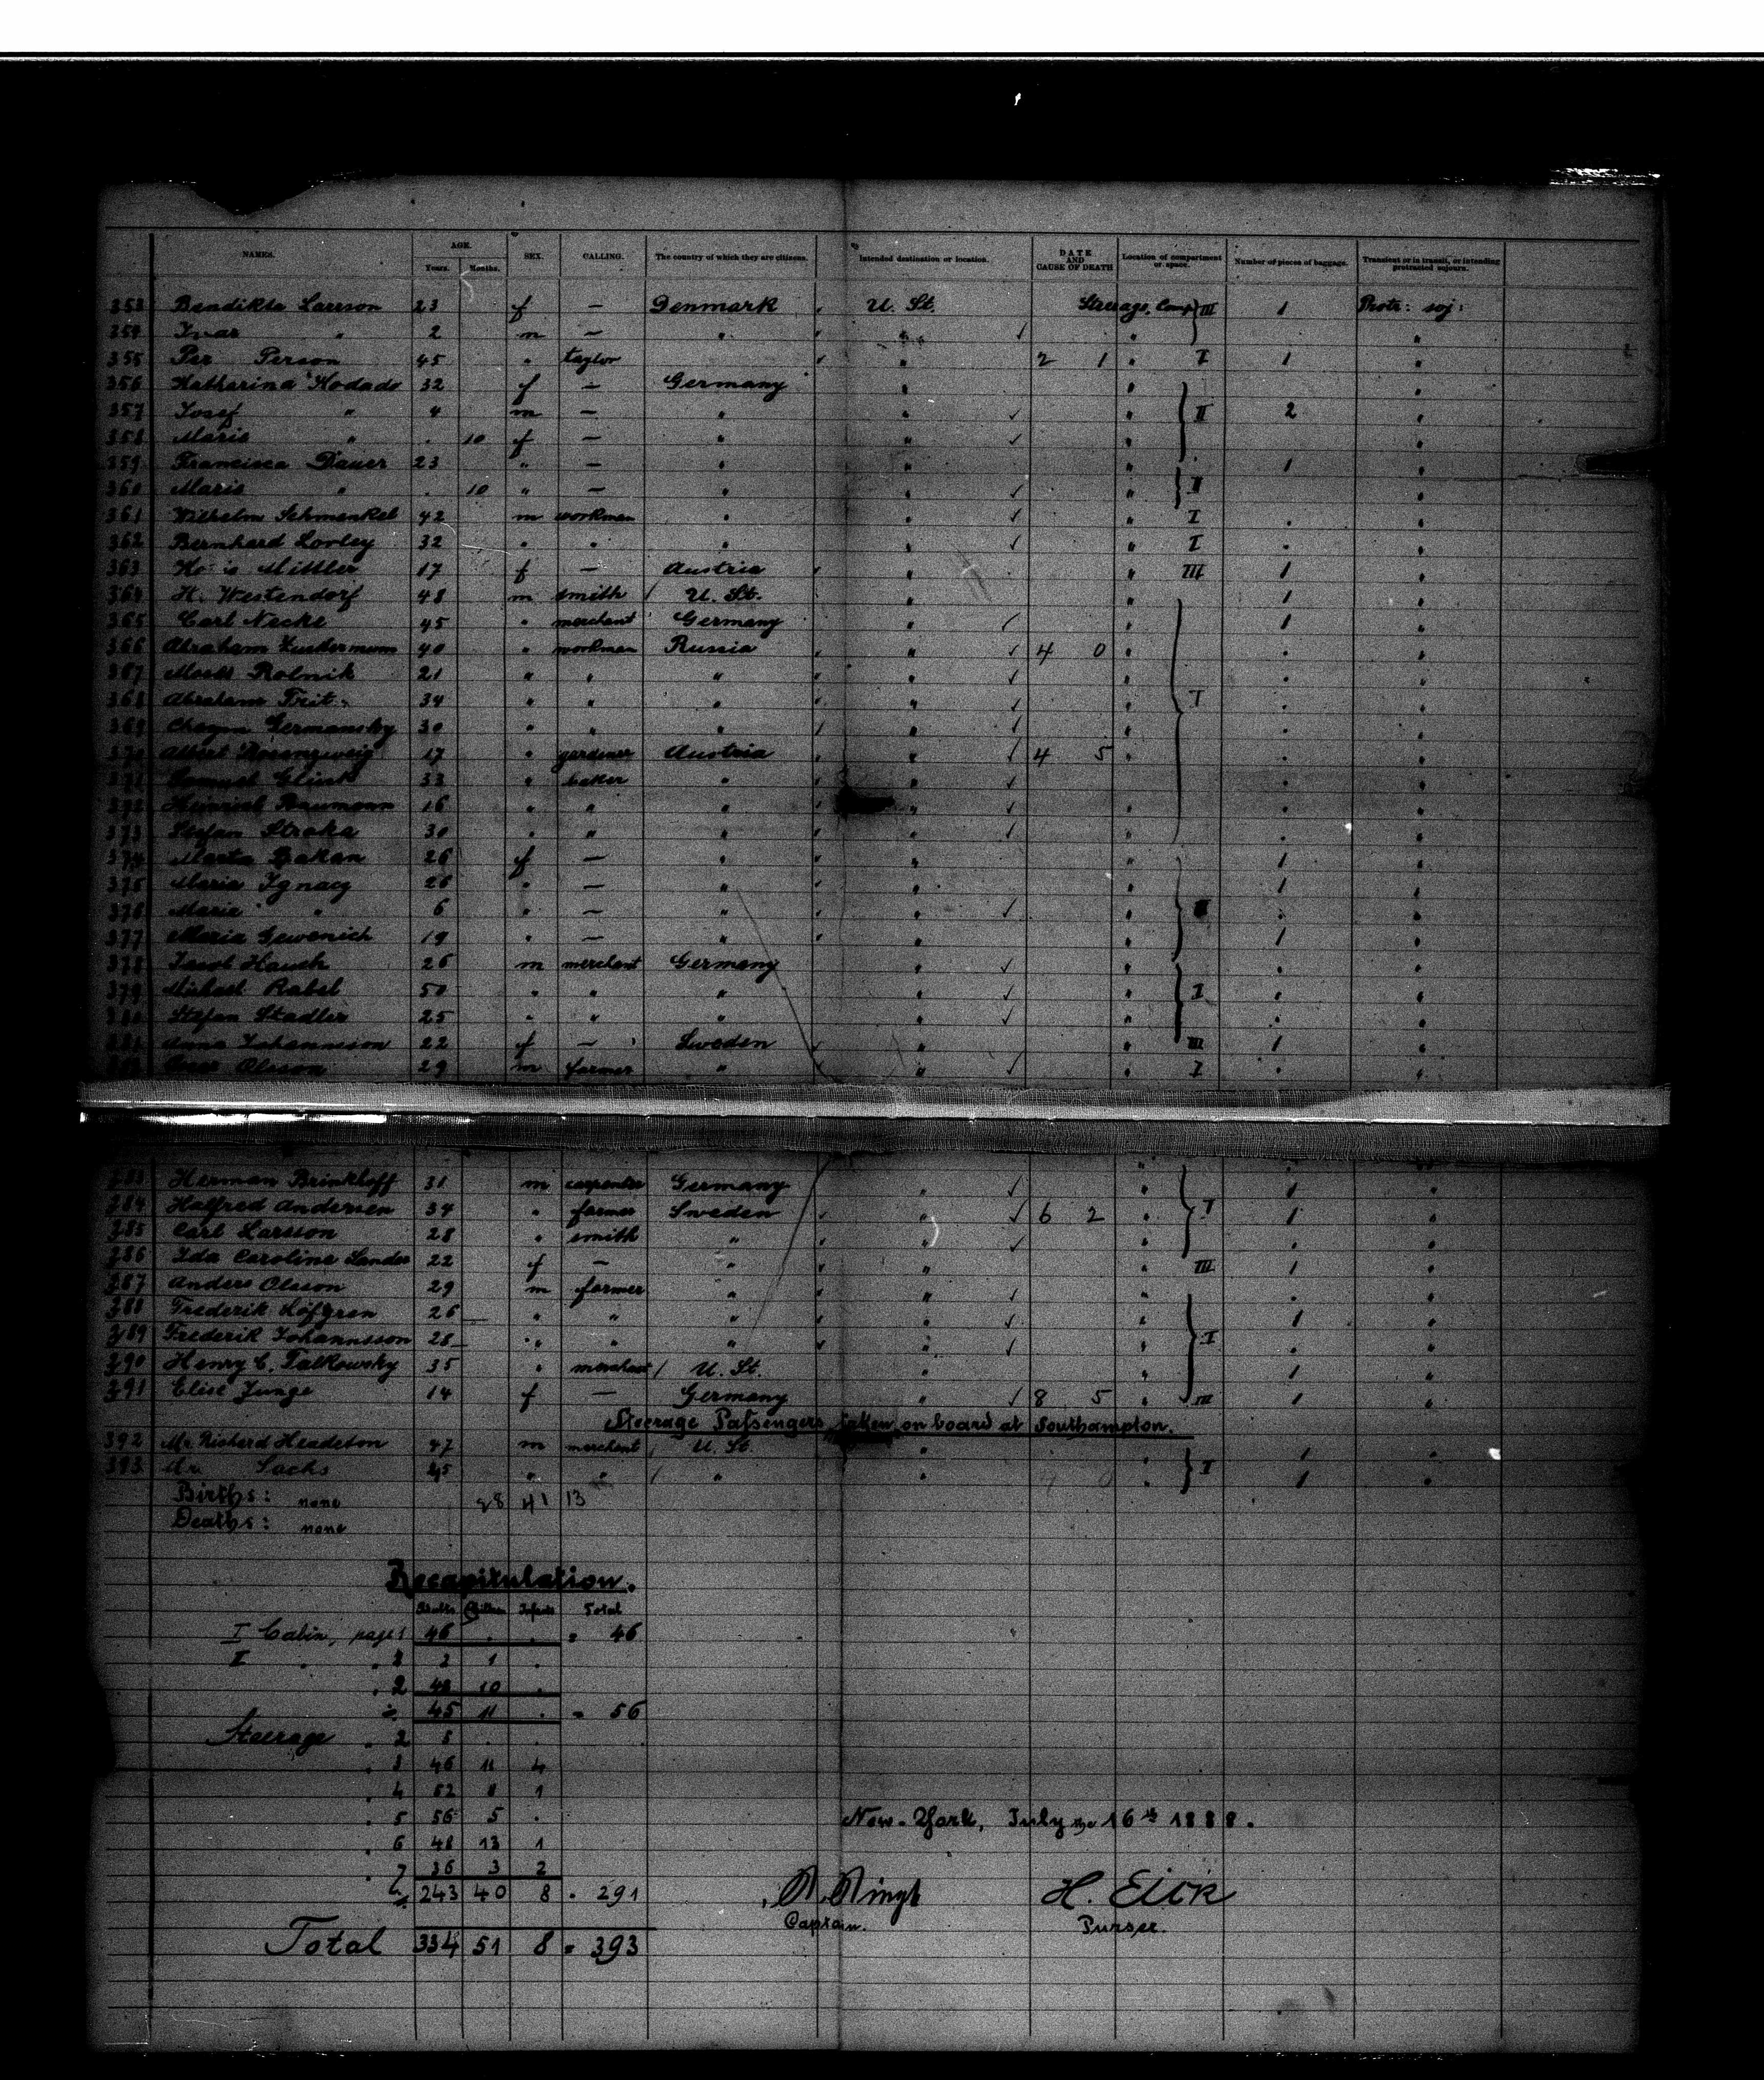 NAMES. AGE. Years. Months. SEX. CALLING. The country of which they are citizens. Intended destination or location. DATE AND CAUSE OF DEATH Location of compartment or space. Number of pieces of baggage. Transient or in transit, or intending protracted sojourn.
353 Bendikte Larsson 23 f — Denmark U. St. Steerage, Comp III 1 Protr: soj:
354 Ivar " 2 m — " " ✓ " "
355 Per Person 45 " taylor " 2 1 " I 1 "
356 Katharina Kodado 32 f — Germany " " "
357 Josef " 4 m — " " ✓ " II 2 "
358 Marie " . 10 f — " " ✓ " "
359 Francisca Bauer 23 " — " " " 1 "
360 Marie " . 10 " — " " ✓ " II "
361 Wilhelm Schmenkel 42 m workman " " ✓ " I . "
362 Bernhard Lorley 32 " " " " ✓ " I . "
363 Mittler 17 f — Austria " " III 1 "
364 H. Westendorf 48 m smith / U. St. " " 1 "
365 Carl Necke 45 " merchant Germany " ✓ " 1 "
366 Abraham Zuckermann 40 " workman Russia " ✓ 4 0 " . "
367 Rolnik 21 " " " " ✓ " . "
368 Abraham 34 " " " " ✓ " I . "
369 Germansky 30 " " " " ✓ " . "
370 Albert Rosenzweig 17 " gardener Austria " ✓ 4 5 " . "
371 Samuel 33 " baker " " ✓ " . "
372 Heinrich Baumann 16 " " " " ✓ " . "
373 Stefan Straka 30 " " " " ✓ " . "
374 Marta Bakan 26 f — " " " 1 "
375 Maria Ignacy 26 " — " " " 1 "
376 Marie " 6 " — " " ✓ " . "
377 Maria Gewenich 19 " — " " " 1 "
378 Jacob Hauck 26 m merchant Germany " ✓ " . "
379 Michael Rabel 50 " " " " ✓ " I . "
380 Stefan Stadler 25 " " " " ✓ " . "
381 Anna Johannsson 22 f — Sweden " " III 1 "
Olsson 29 m farmer " " ✓ " I . "
383 Herman Brinkhoff 31 m carpenter Germany " ✓ " 1 "
384 Halfred Andersen 34 " farmer Sweden " ✓ 6 2 " I 1 "
385 Carl Larsson 28 " smith " " ✓ " . "
386 Ida Caroline Lander 22 f — " " " III 1 "
387 Anders Olsson 29 m farmer " " ✓ " . "
388 Frederik Löfgren 26 " " " " ✓ " 1 "
389 Frederik Johannsson 28 " " " " ✓ " I . "
390 Henry C. Falkowsky 35 " merchant / U. St. " " 1 "
391 Elise Junge 14 f — Germany " ✓ 8 5 " III 1 "
Steerage Passengers taken on board at Southampton.
392 Mr. Richard Headeton 47 m merchant / U. St. " " 1 "
393 Mr. Sachs 45 " " / " " " I 1 "
Births: none 28 41 13
Deaths: none
Recapitulation.
Adults Children Infants Total
I Cabin, page 1 46 . . = 46
II " " 1 2 1 .
" 2 43 10 .
45 11 . = 56
Steerage " 2 5 . .
" 3 46 11 4
" 4 52 8 1
" 5 56 5 .
New-York, July the 16th 1888.
" 6 48 13 1
" 7 36 3 2
243 40 8 = 291
H. Eick
Captain. Purser.
Total 334 51 8 = 393